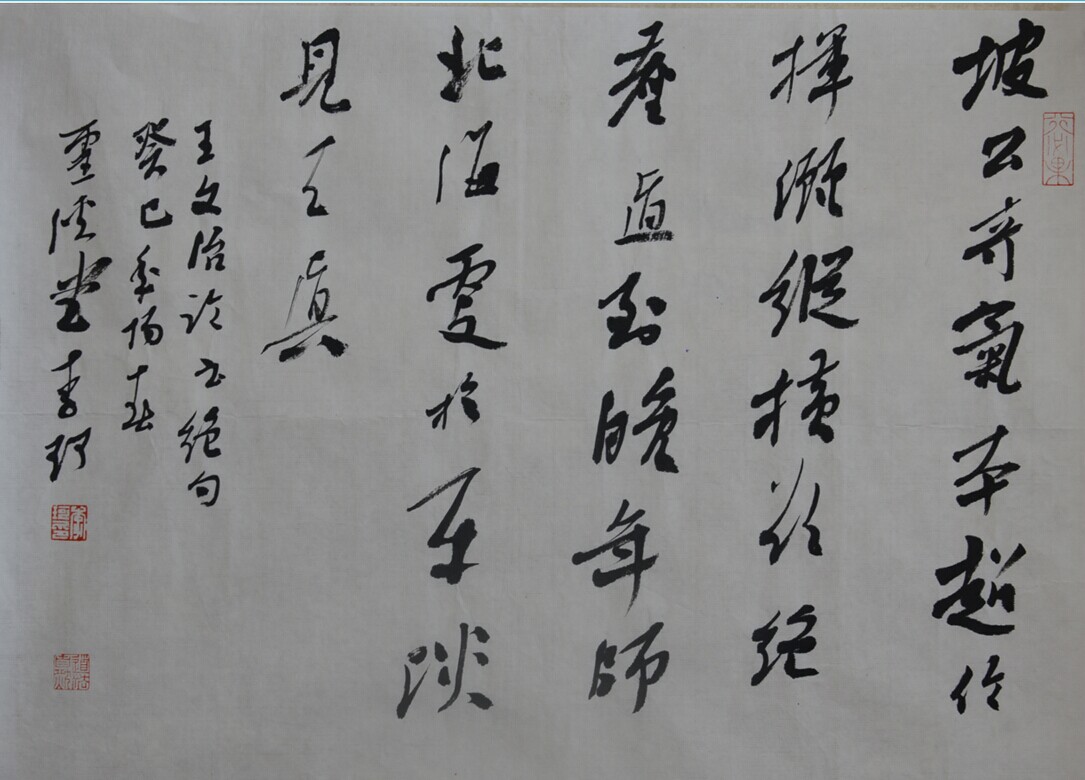 坡公奇氣本超倫
揮灑縱橫欲絕
塵直到晚年師
北海更於平淡
見天真
王文治論書絕句
癸巳
堂李